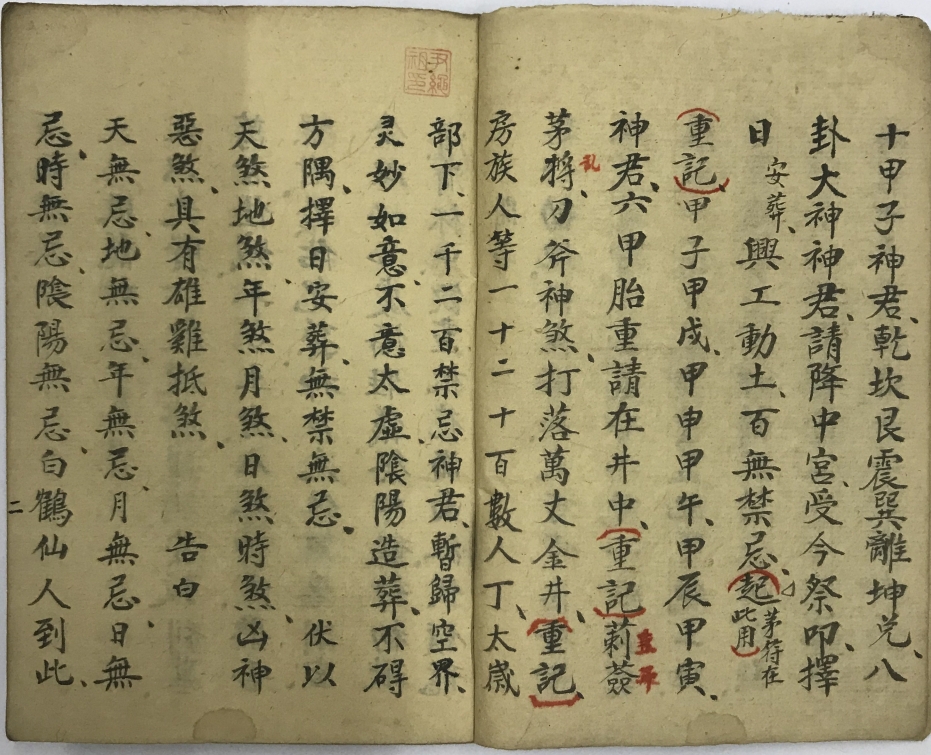 十甲子神君、乾坎艮震巽離坤兑、八
卦大神神君、請降中宮、受今祭叩、擇
日安葬、興工動土、百無禁忌、起茅符在此用
重記甲子甲戌、甲申甲午、甲辰甲寅、
神君、六甲胎重請在井中、重記莿薟
茅㨿、刀斧神煞、打落萬丈金井、重記、
房族人等一十二十百數人丁、太歲
部下、一千二百禁忌神君、暫歸空界、
灵妙如意、不意太虛、陰陽造葬、不碍
方隅、擇日安葬、無禁無忌、伏以
天煞地煞、年煞月煞、日煞時煞、凶神
惡煞、具有雄雞抵煞、告白
天無忌、地無忌、年無忌、月無忌、日無
忌、時無忌、陰陽無忌、白鶴仙人到此、
二